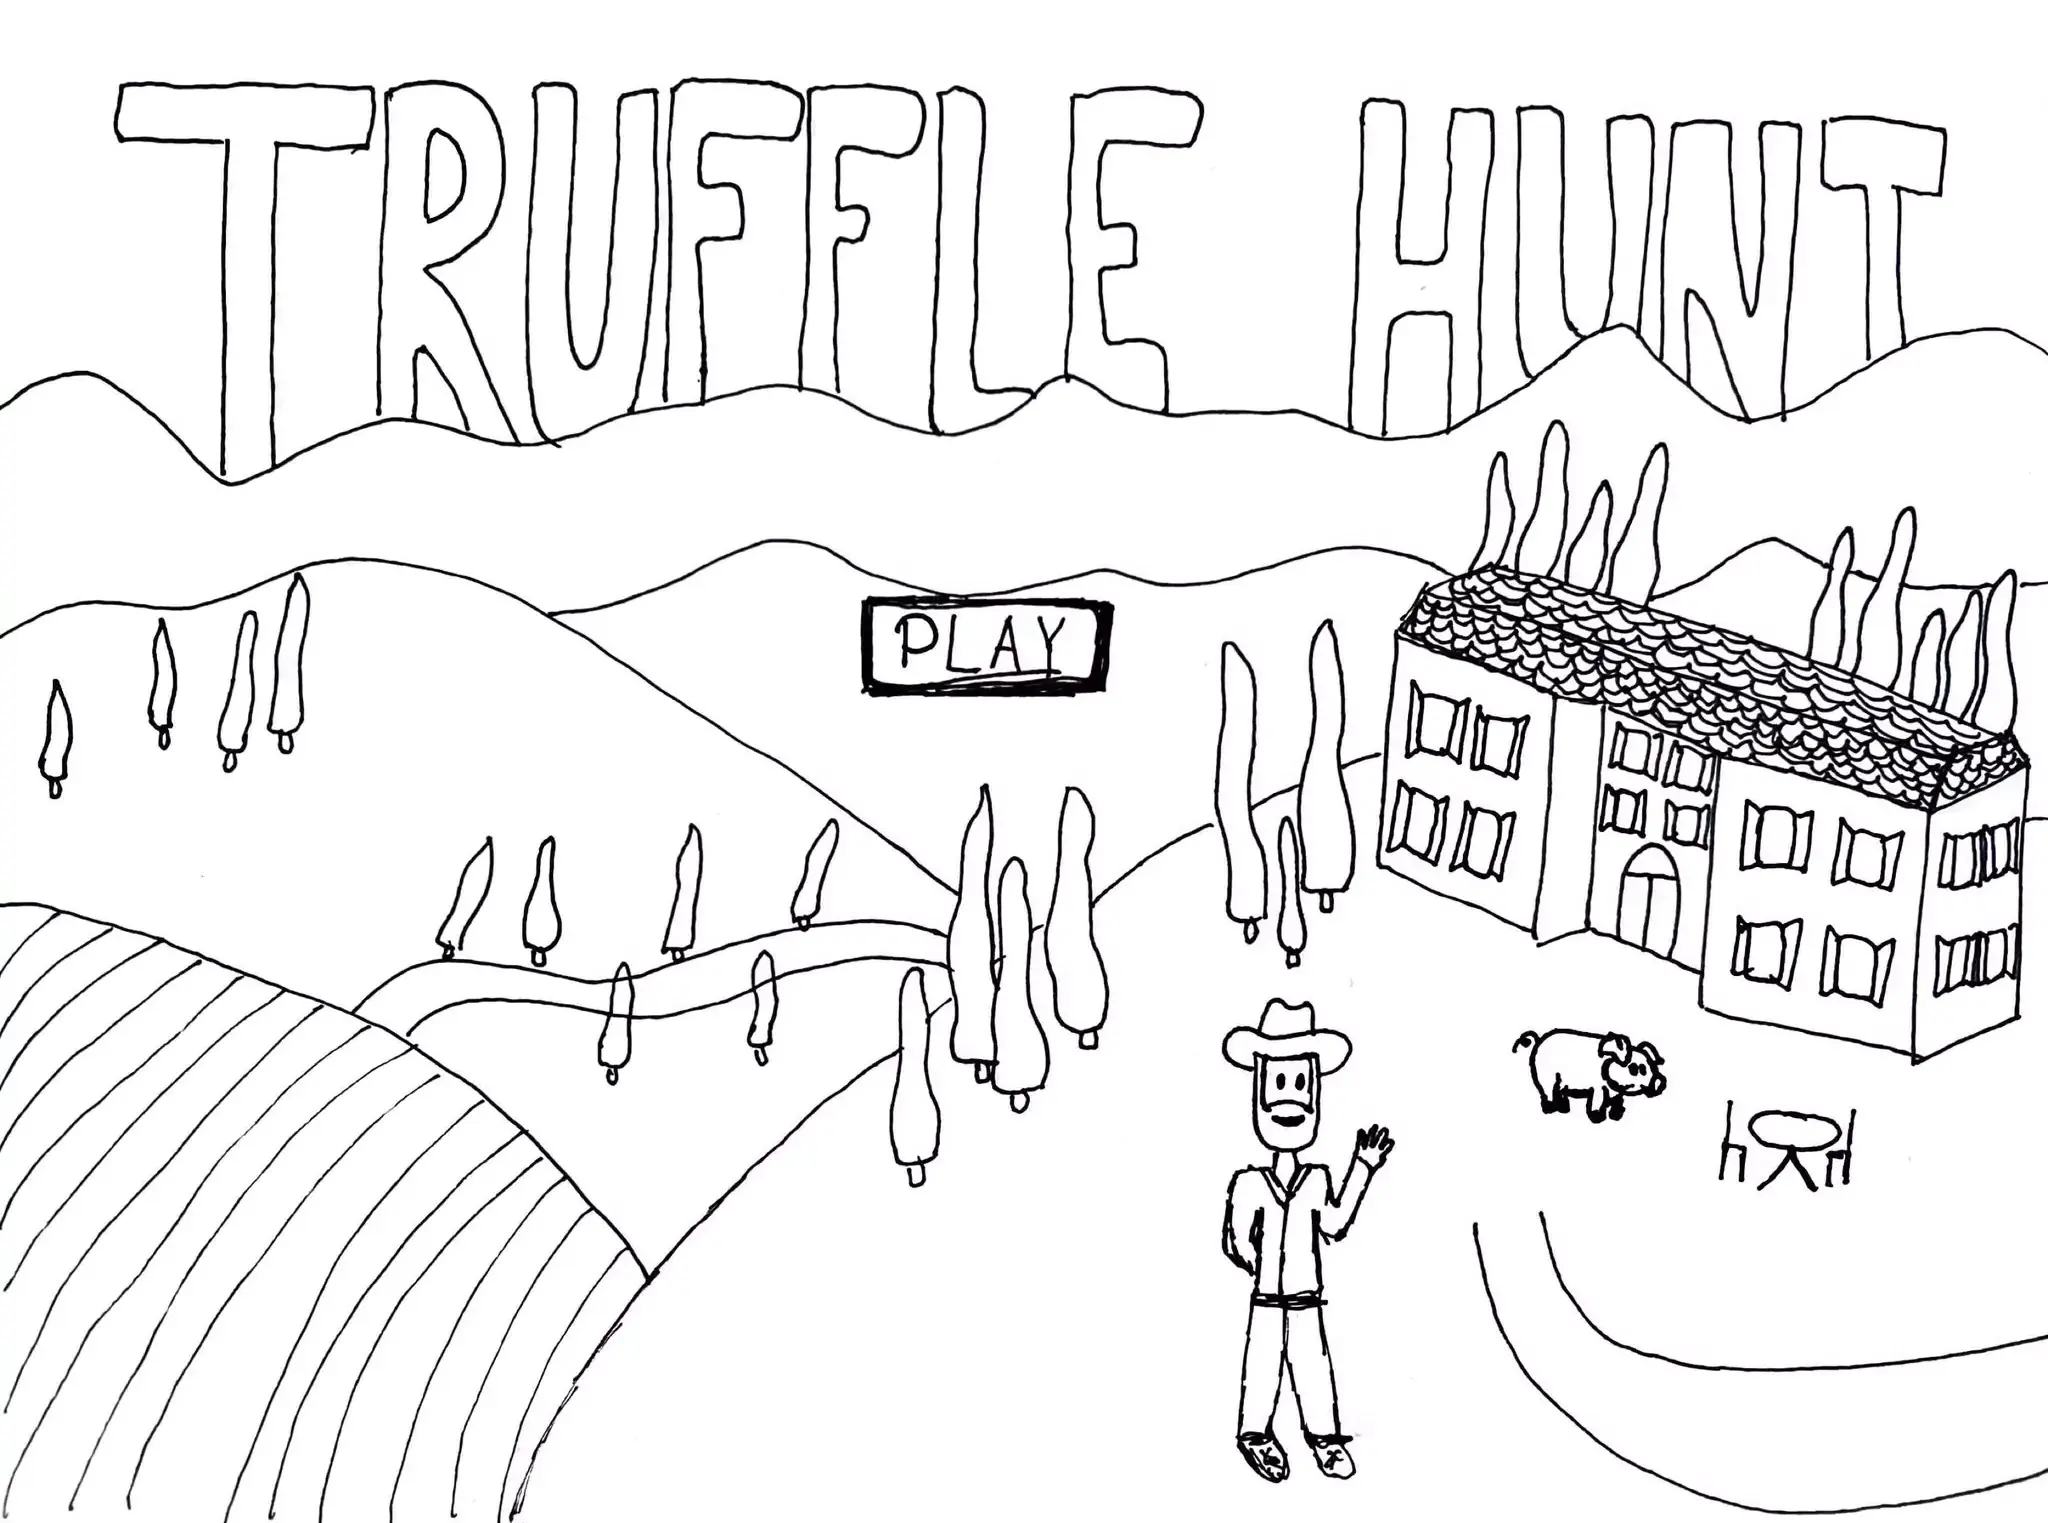 TRUFFLE HUNT
PLAY